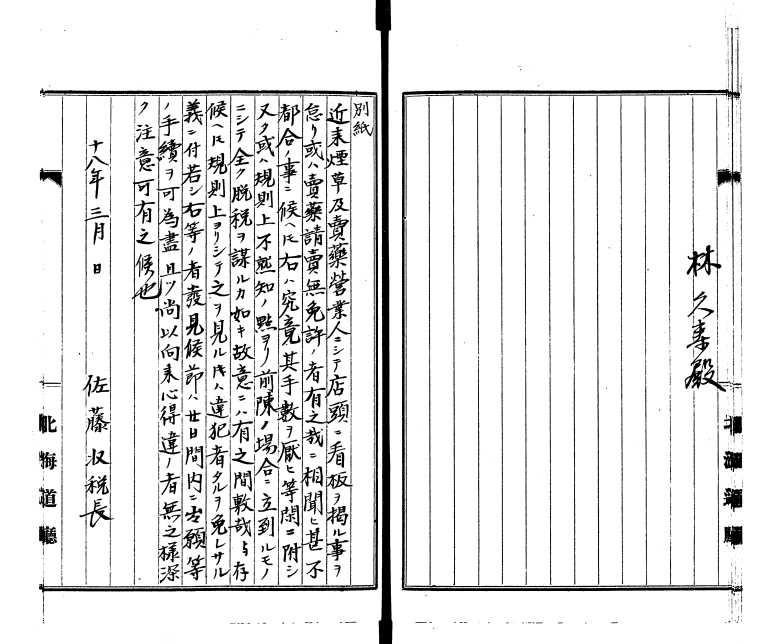 林久泰殿
別紙
近来煙草及賣藥營業人ニシテ店頭ニ看板ヲ掲ル事ヲ
怠リ或ハ賣藥請賣無免許ノ者有之哉ニ相聞ヒ甚不
都合ノ事ニ候ヘ𪜈右ハ究竟其手數ヲ厭ヒ等閑ニ附シ
又ク或ハ規則上不熟知ノ點ヨリ前陳ノ場合ニ立到ルモノ
ニシテ全ク脱税ヲ謀ルカ如キ故意ニハ有之間敷哉ト存
候ヘ𪜈規則上ヨリシテ之ヲ見ル𪜈ハ違犯者タルヲ免レサル
義ニ付若シ右等ノ者發見候節ハ廿日間内ニ出願等
ノ手續ヲ可為盡且ツ尚以向来心得違ノ者無之様深
ク注意可有之候也
十八年三月 日
佐藤収税長
北海道廳